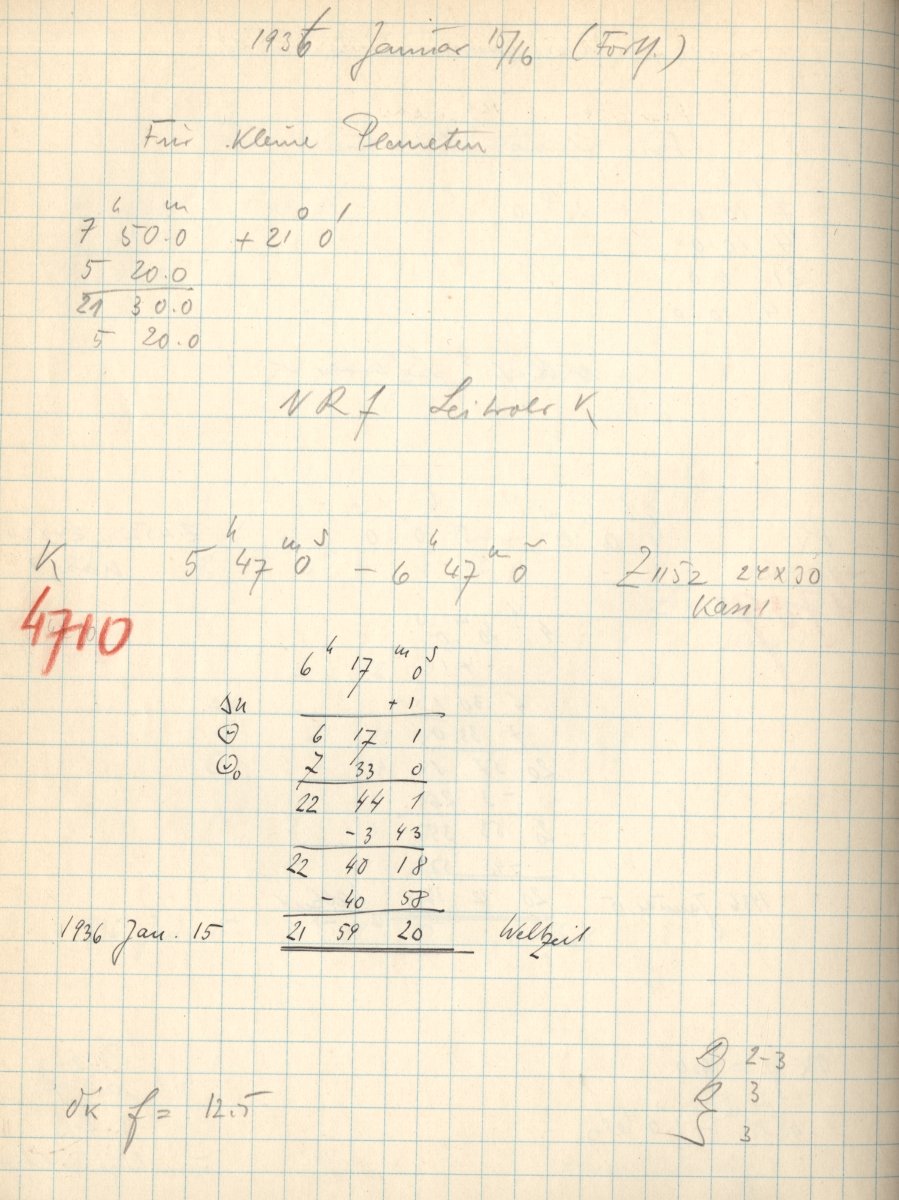 1936 Januar 15/16 (Forts.)
Für Kleine Planeten
7ʰ 50.0ᵐ +21° 0'
5 20.0
21 30.0
5 20.0
NRf Leitrohr K
K 5ʰ 47ᵐ 0ˢ – 6ʰ 47ᵐ 0ˢ Z 1152 24x30
Kass 1
4710
6ʰ 17ᵐ 0ˢ
Δu +1
6 17 1
7 33 0
22 44 1
-3 43
22 40 18
-40 58
1936 Jan. 15 21 59 20 Weltzeit
2-3
3
ök f = 12.5
3